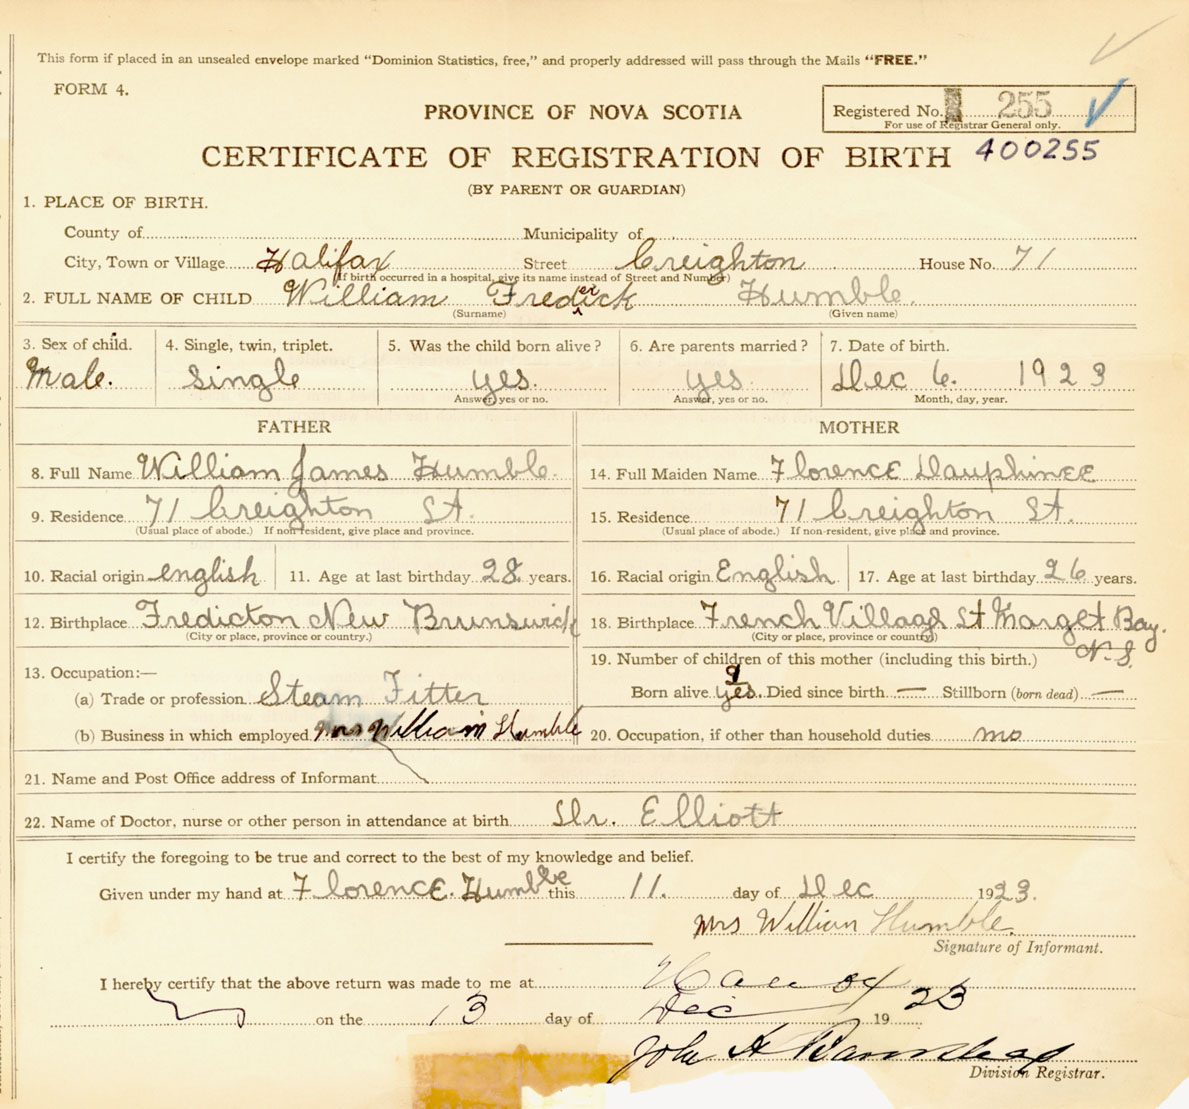 This form if placed in an unsealed envelope marked "Dominion Statistics, free," and properly addressed will pass through the Mails "FREE."
FORM 4.
PROVINCE OF NOVA SCOTIA
Registered No. 255
For use of Registrar General only.
CERTIFICATE OF REGISTRATION OF BIRTH 400255
(BY PARENT OR GUARDIAN)
1. PLACE OF BIRTH.
County of Municipality of
City, Town or Village Halifax Street Creighton House No. 71
(If birth occurred in a hospital, give its name instead of Street and Number)
2. FULL NAME OF CHILD William Frederick Humble.
(Surname) (Given name)
3. Sex of child. 4. Single, twin, triplet. 5. Was the child born alive? 6. Are parents married? 7. Date of birth.
Male. single yes. yes. Dec 6. 1923
Answer, yes or no. Answer, yes or no. Month, day, year.
FATHER MOTHER
8. Full Name William James Humble. 14. Full Maiden Name Florence Dauphinee
9. Residence 71 Creighton St. 15. Residence 71 Creighton St.
(Usual place of abode.) If non-resident, give place and province. (Usual place of abode.) If non-resident, give place and province.
10. Racial origin english 11. Age at last birthday 28 years. 16. Racial origin English 17. Age at last birthday 26 years.
12. Birthplace Fredicton New Brunswick 18. Birthplace French Village St Marget Bay. N.S.
(City or place, province or country.) (City or place, province or country)
13. Occupation:— 19. Number of children of this mother (including this birth.)
(a) Trade or profession Steam Fitter Born alive yes. Died since birth — Stillborn (born dead) —
(b) Business in which employed Mrs William Humble 20. Occupation, if other than household duties no
21. Name and Post Office address of Informant
22. Name of Doctor, nurse or other person in attendance at birth Dr. Elliott
I certify the foregoing to be true and correct to the best of my knowledge and belief.
Given under my hand at Florence. Humble this 11. day of Dec 1923.
Mrs William Humble.
Signature of Informant.
I hereby certify that the above return was made to me at
on the 13 day of Dec 19 23
John A
Division Registrar.